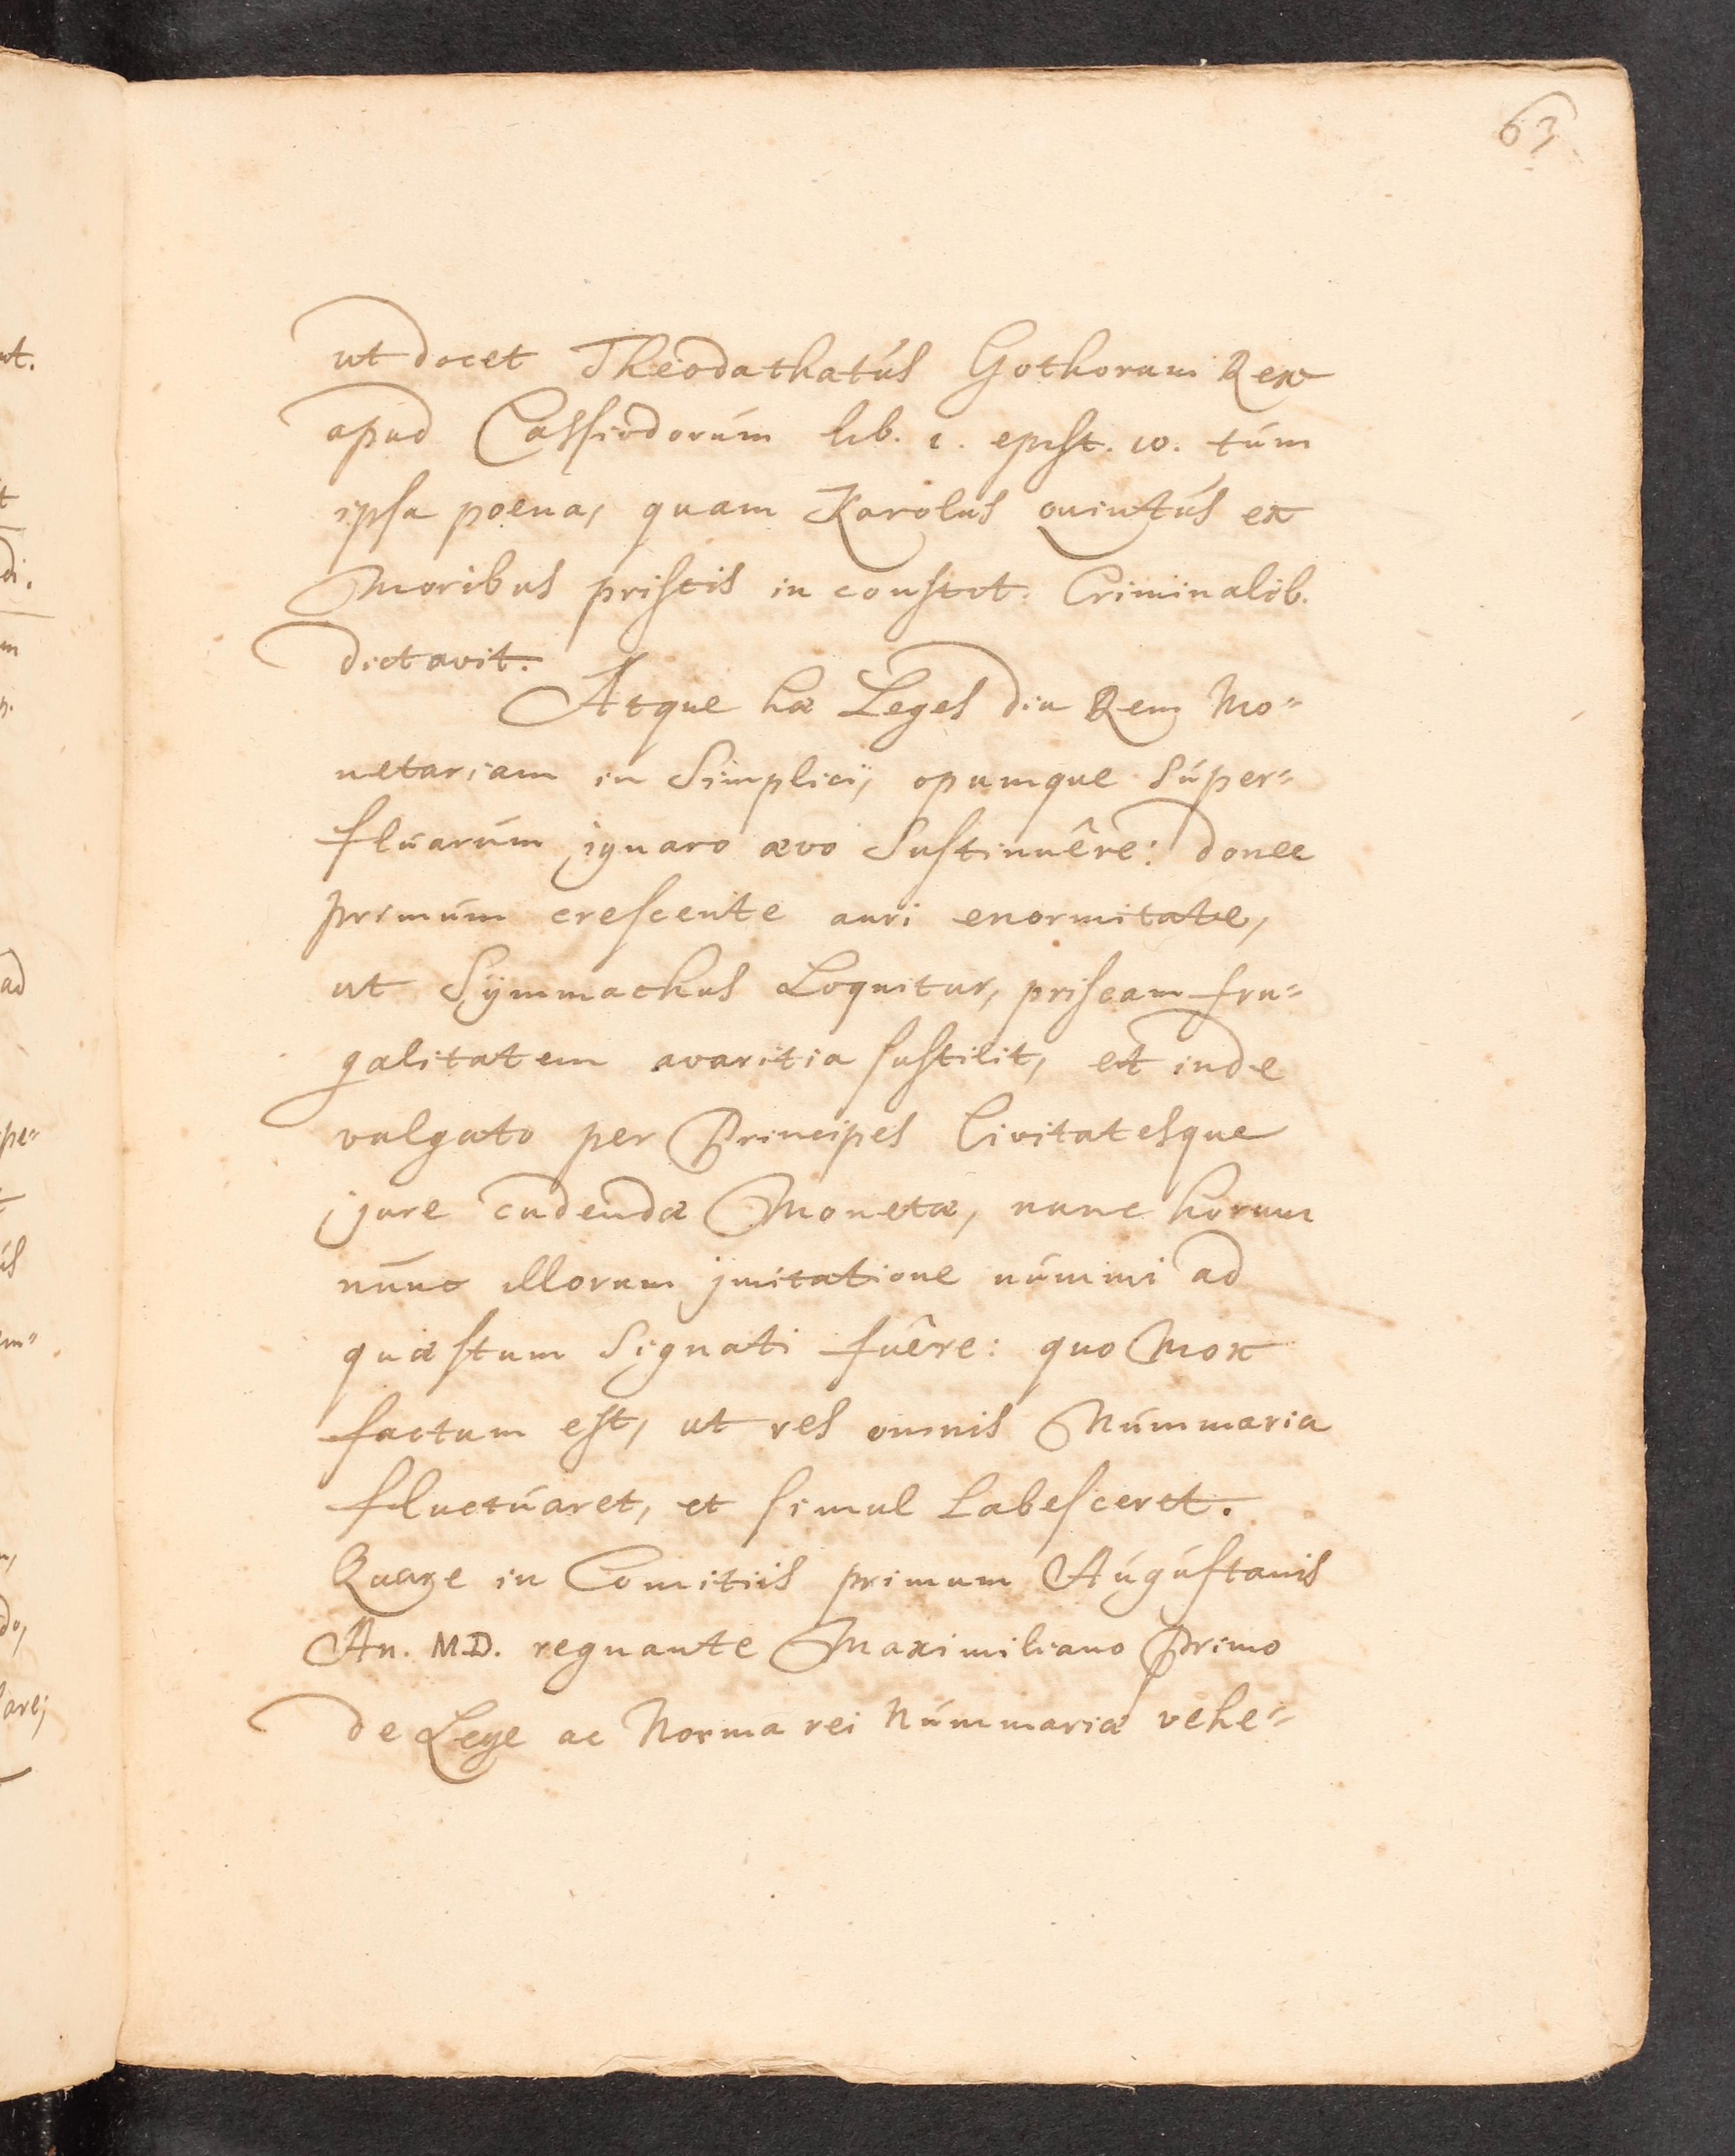 63
ut docet Theodathatús Gothorum Rex
apud Cassiodorúm lib. 1. epist. 10. túm
ipsa poena, quam Karolus quintús ex
Moribus pristis in constit. Criminalib.
dictavit.
Atque hæ Leges diu Rem Mo-
netariam in Simplici, opumque súper-
flúarúm ignaro ævo Sustinuêre: donec
primúm crescente auri enormitate,
ut Sÿmmachus Loquitur, priscam fru-
galitatem avaritia sustilit, et inde
vulgato per Principes Civitatesque
jure cudendæ Monetæ, nunc horum
núnc illorum jmitatione númmi ad
quæstum Signati fuêre: quo Mox
factum est, ut res omnis Númmaria
fluctúaret, et simul Labesceret.
Quare in Comitiis primum Aúgústanis
An. M.D. regnante Maximiliano Primo
de Lege ac Norma rei Númmariæ vehe-